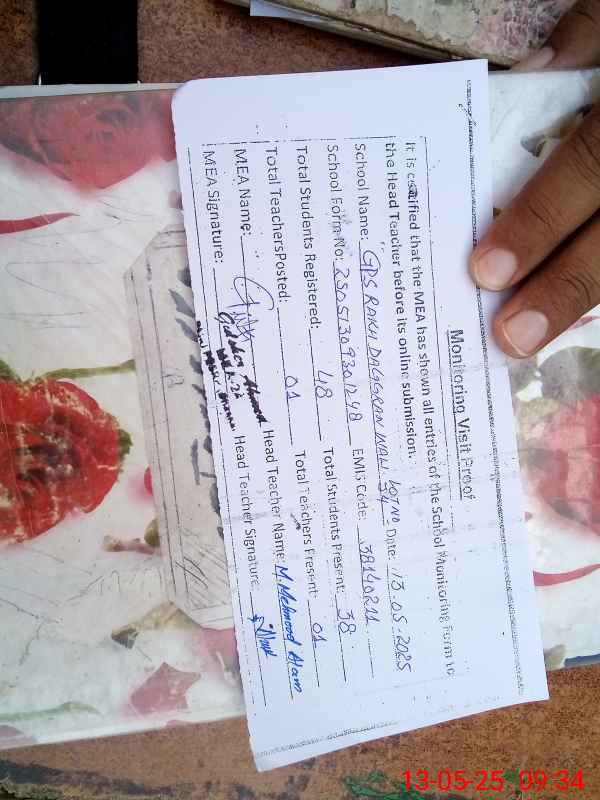 Monitoring Visit Proof
It is certified that the MEA has shown all entries of the School Monitoring Form to
the Head Teacher before its online submission.
School Name: GPS RAKH DAGGRAN WALI Lot No 34 Date: 13.05.2025
School Form No: 25051309301248 EMIS Code: 38140211
Total Students Registered: 48 Total Students Present: 38
Total Teachers Posted: 01 Total Teachers Present: 01
MEA Name: Head Teacher Name: M. Mehmood Alam
MEA Signature: Head Teacher Signature:
13-05-25 09:34